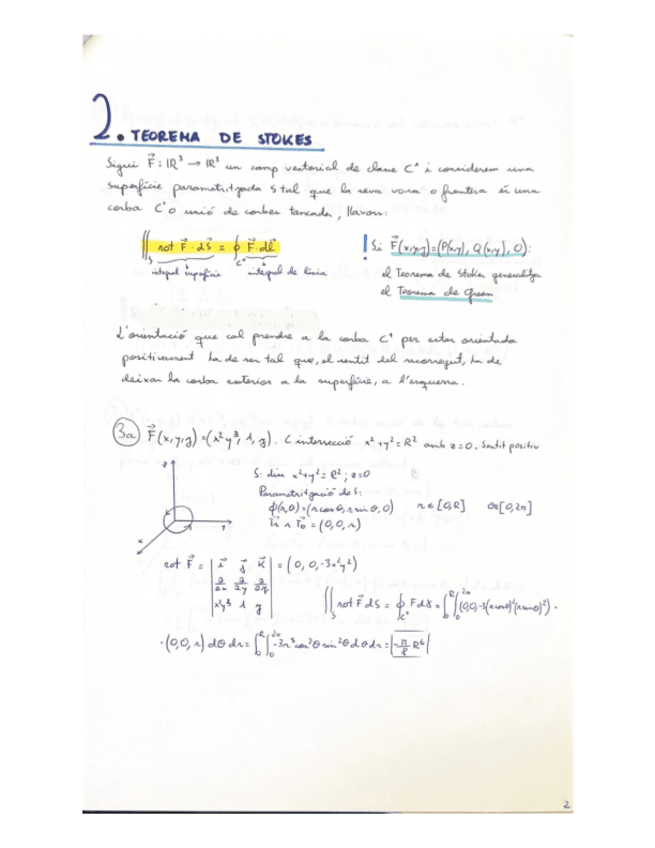 2. TEOREMA DE STOKES
Sigui F⃗: ℝ³ → ℝ³ un camp vectorial de classe C¹ i considerem una
superfície parametritzada S tal que la seva vora o frontera és una
corba C⁺ o unió de corbes tancades, llavors:
∬_S rot F⃗ · dS⃗ = ∮_C⁺ F⃗ · dl⃗
integral superfície integral de línia
! Si F⃗(x,y,z)=(P(x,y), Q(x,y), 0):
el Teorema de Stokes generalitza
el Teorema de Green
L'orientació que cal prendre a la corba C⁺ per estar orientada
positivament ha de ser tal que, el sentit del recorregut, ha de
deixar la corba exterior a la superfície, a l'esquerra.
3a) F⃗(x,y,z)=(x²y³, 1, z). C intersecció x²+y²=R² amb z=0. Sentit positiu
S: disc x²+y²=R²; z=0
Parametrització de S:
ϕ(r,θ)=(r cosθ, r sinθ, 0) r∈[0,R] θ∈[0,2π]
T⃗r ∧ T⃗θ = (0,0,r)
z
x
y
rot F⃗ = | i⃗ j⃗ k⃗ | = (0, 0, -3x²y²)
∂/∂x ∂/∂y ∂/∂z
x²y³ 1 z
∬_S rot F⃗ dS = ∮_C⁺ F dγ = ∫₀^R ∫₀^2π (0,0,-3(r cosθ)²(r sinθ)²) ·
· (0,0,r) dθ dr = ∫₀^R ∫₀^2π -3r⁵cos²θ sin²θ dθ dr = -π/8 R⁶
2